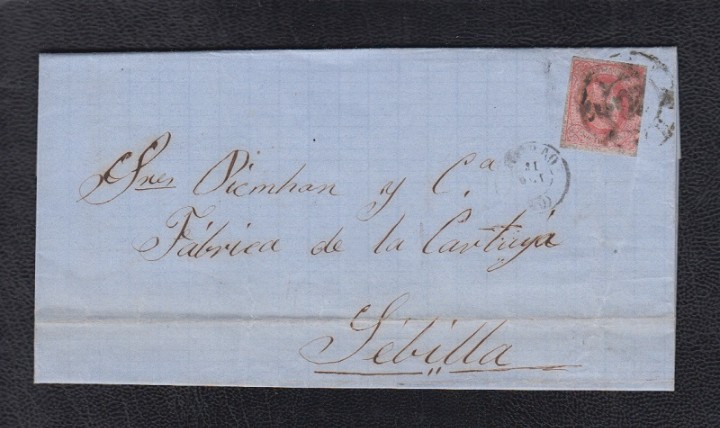 Sres Picmhan y C.a
Fábrica de la Cartuja
Sebilla